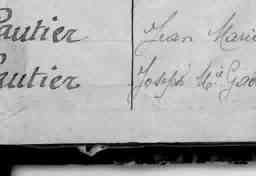 Gautier Jean Marie
Gautier Joseph Mie